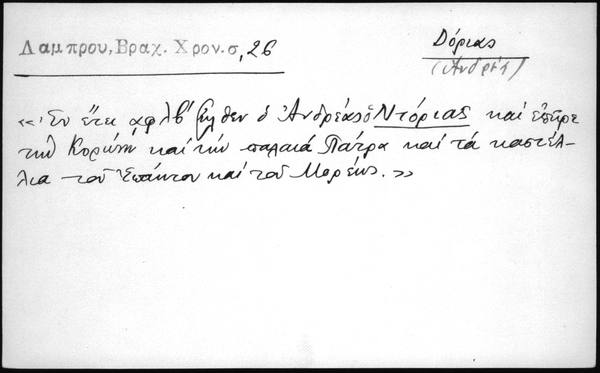 Λαμπρου, Βραχ. Χρον. σ, 26
Δόριας
(Ἀνδρέας)
«Ἐν ἔτει αφλβ' ἦλθεν ὁ Ἀνδρέας ὁ Ντόριας καὶ ἐπῆρε
τὴν Κορώνη καὶ τὴν παλαιὰ Πάτρα καὶ τὰ καστέλ-
λια τοῦ Ἐπάκτου καὶ τοῦ Μορέως.»